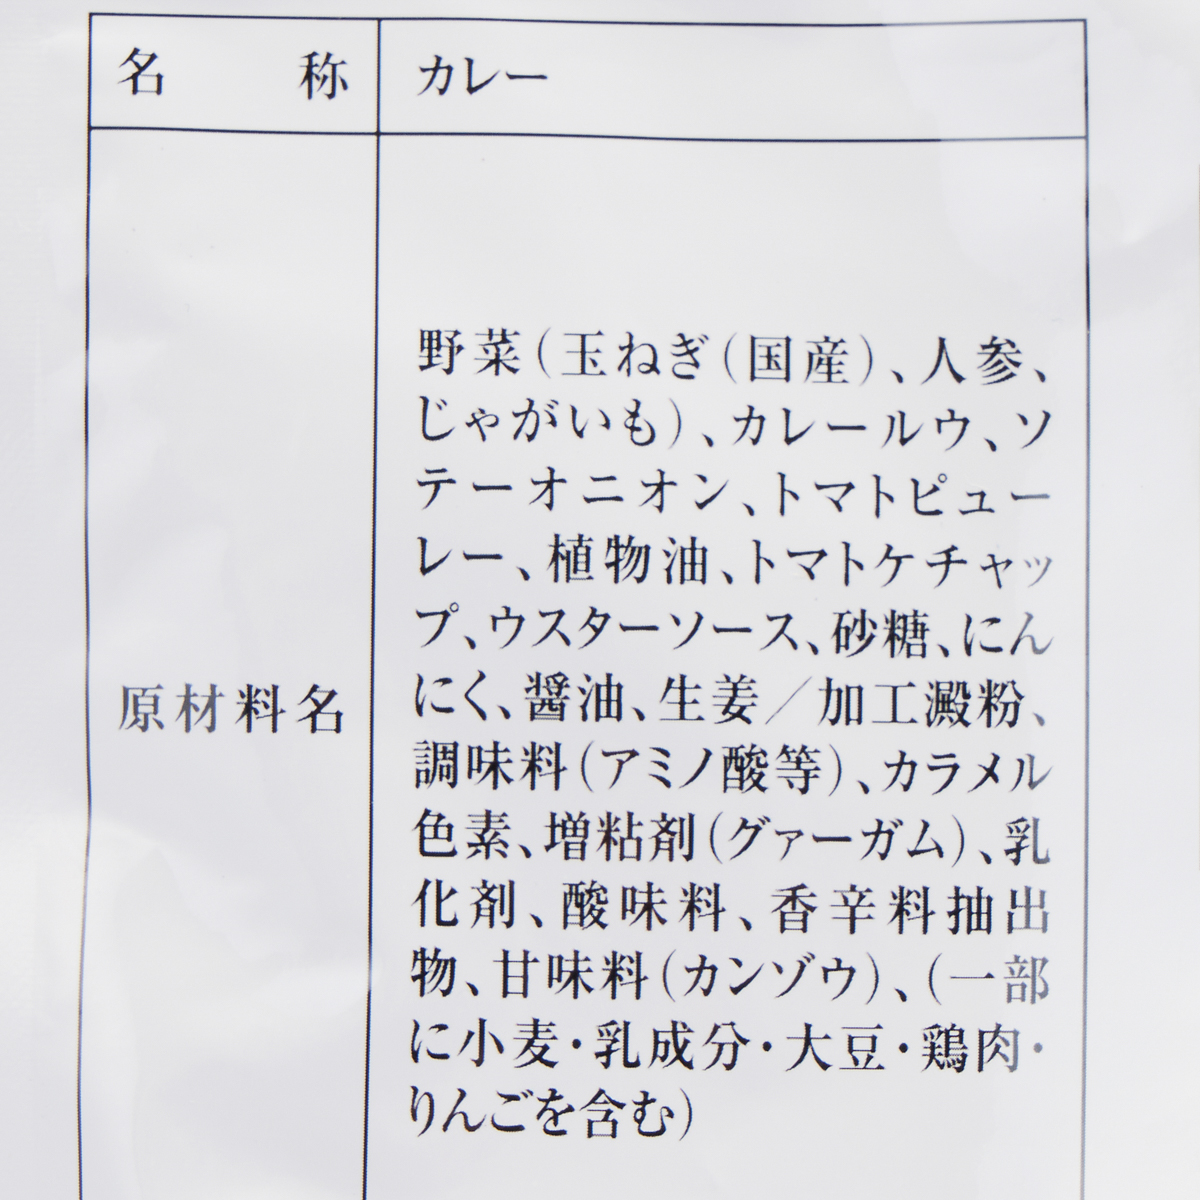 名称 カレー
原材料名
野菜(玉ねぎ(国産)、人参、
じゃがいも)、カレールウ、ソ
テーオニオン、トマトピュー
レー、植物油、トマトケチャッ
プ、ウスターソース、砂糖、にん
にく、醤油、生姜/加工澱粉、
調味料(アミノ酸等)、カラメル
色素、増粘剤(グァーガム)、乳
化剤、酸味料、香辛料抽出
物、甘味料(カンゾウ)、(一部
に小麦・乳成分・大豆・鶏肉・
りんごを含む)